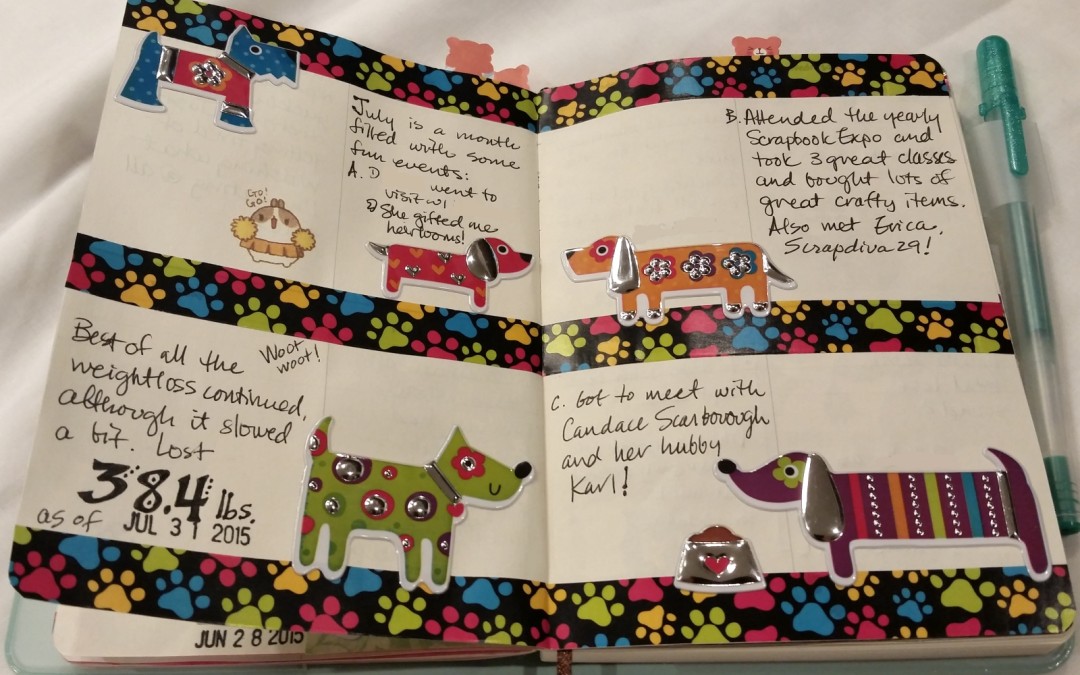 July is a month
filled with some
fun events:
A. D went to
visit w/
She gifted me
heirlooms!
GO!
GO!
Best of all the
weightloss continued,
although it slowed
a bit. Lost
Woot
woot!
38.4 lbs.
as of JUL 31 2015
JUN 28 2015
B. Attended the yearly
Scrapbook Expo and
took 3 great classes
and bought lots of
great crafty items.
Also met Erica,
Scrapdiva29!
C. Got to meet with
Candace Scarborough
and her hubby
Karl!